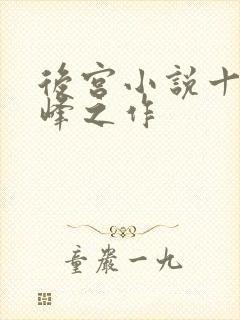 後宮小説十
峰之作
童嚴一九